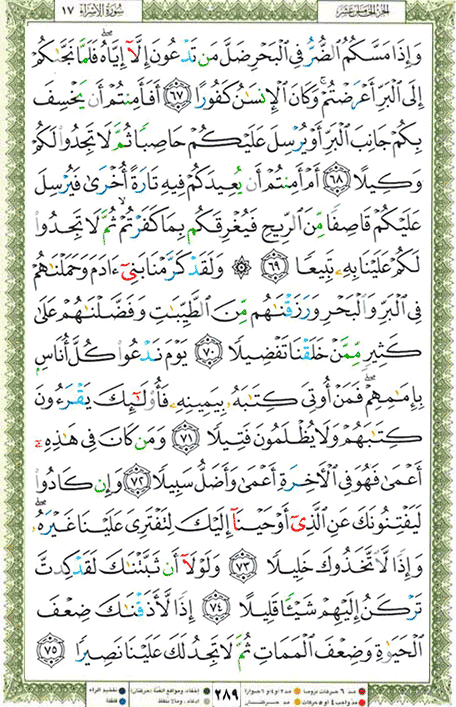 الجزء الخامس عشر سورة الإسراء ١٧
وَإِذَا مَسَّكُمُ ٱلضُّرُّ فِى ٱلْبَحْرِ ضَلَّ مَن تَدْعُونَ إِلَّآ إِيَّاهُ فَلَمَّا نَجَّىٰكُمْ
إِلَى ٱلْبَرِّ أَعْرَضْتُمْ وَكَانَ ٱلْإِنسَٰنُ كَفُورًا ٦٧ أَفَأَمِنتُمْ أَن يَخْسِفَ
بِكُمْ جَانِبَ ٱلْبَرِّ أَوْ يُرْسِلَ عَلَيْكُمْ حَاصِبًا ثُمَّ لَا تَجِدُوا۟ لَكُمْ
وَكِيلًا ٦٨ أَمْ أَمِنتُمْ أَن يُعِيدَكُمْ فِيهِ تَارَةً أُخْرَىٰ فَيُرْسِلَ
عَلَيْكُمْ قَاصِفًا مِّنَ ٱلرِّيحِ فَيُغْرِقَكُم بِمَا كَفَرْتُمْ ثُمَّ لَا تَجِدُوا۟
لَكُمْ عَلَيْنَا بِهِۦ تَبِيعًا ٦٩ ۞ وَلَقَدْ كَرَّمْنَا بَنِىٓ ءَادَمَ وَحَمَلْنَٰهُمْ
فِى ٱلْبَرِّ وَٱلْبَحْرِ وَرَزَقْنَٰهُم مِّنَ ٱلطَّيِّبَٰتِ وَفَضَّلْنَٰهُمْ عَلَىٰ
كَثِيرٍ مِّمَّنْ خَلَقْنَا تَفْضِيلًا ٧٠ يَوْمَ نَدْعُوا۟ كُلَّ أُنَاسٍۭ
بِإِمَٰمِهِمْ ۖ فَمَنْ أُوتِىَ كِتَٰبَهُۥ بِيَمِينِهِۦ فَأُو۟لَٰٓئِكَ يَقْرَءُونَ
كِتَٰبَهُمْ وَلَا يُظْلَمُونَ فَتِيلًا ٧١ وَمَن كَانَ فِى هَٰذِهِۦٓ
أَعْمَىٰ فَهُوَ فِى ٱلْءَاخِرَةِ أَعْمَىٰ وَأَضَلُّ سَبِيلًا ٧٢ وَإِن كَادُوا۟
لَيَفْتِنُونَكَ عَنِ ٱلَّذِىٓ أَوْحَيْنَآ إِلَيْكَ لِتَفْتَرِىَ عَلَيْنَا غَيْرَهُۥ ۖ
وَإِذًا لَّٱتَّخَذُوكَ خَلِيلًا ٧٣ وَلَوْلَآ أَن ثَبَّتْنَٰكَ لَقَدْ كِدتَّ
تَرْكَنُ إِلَيْهِمْ شَيْـًٔا قَلِيلًا ٧٤ إِذًا لَّأَذَقْنَٰكَ ضِعْفَ
ٱلْحَيَوٰةِ وَضِعْفَ ٱلْمَمَاتِ ثُمَّ لَا تَجِدُ لَكَ عَلَيْنَا نَصِيرًا ٧٥
٢٨٩